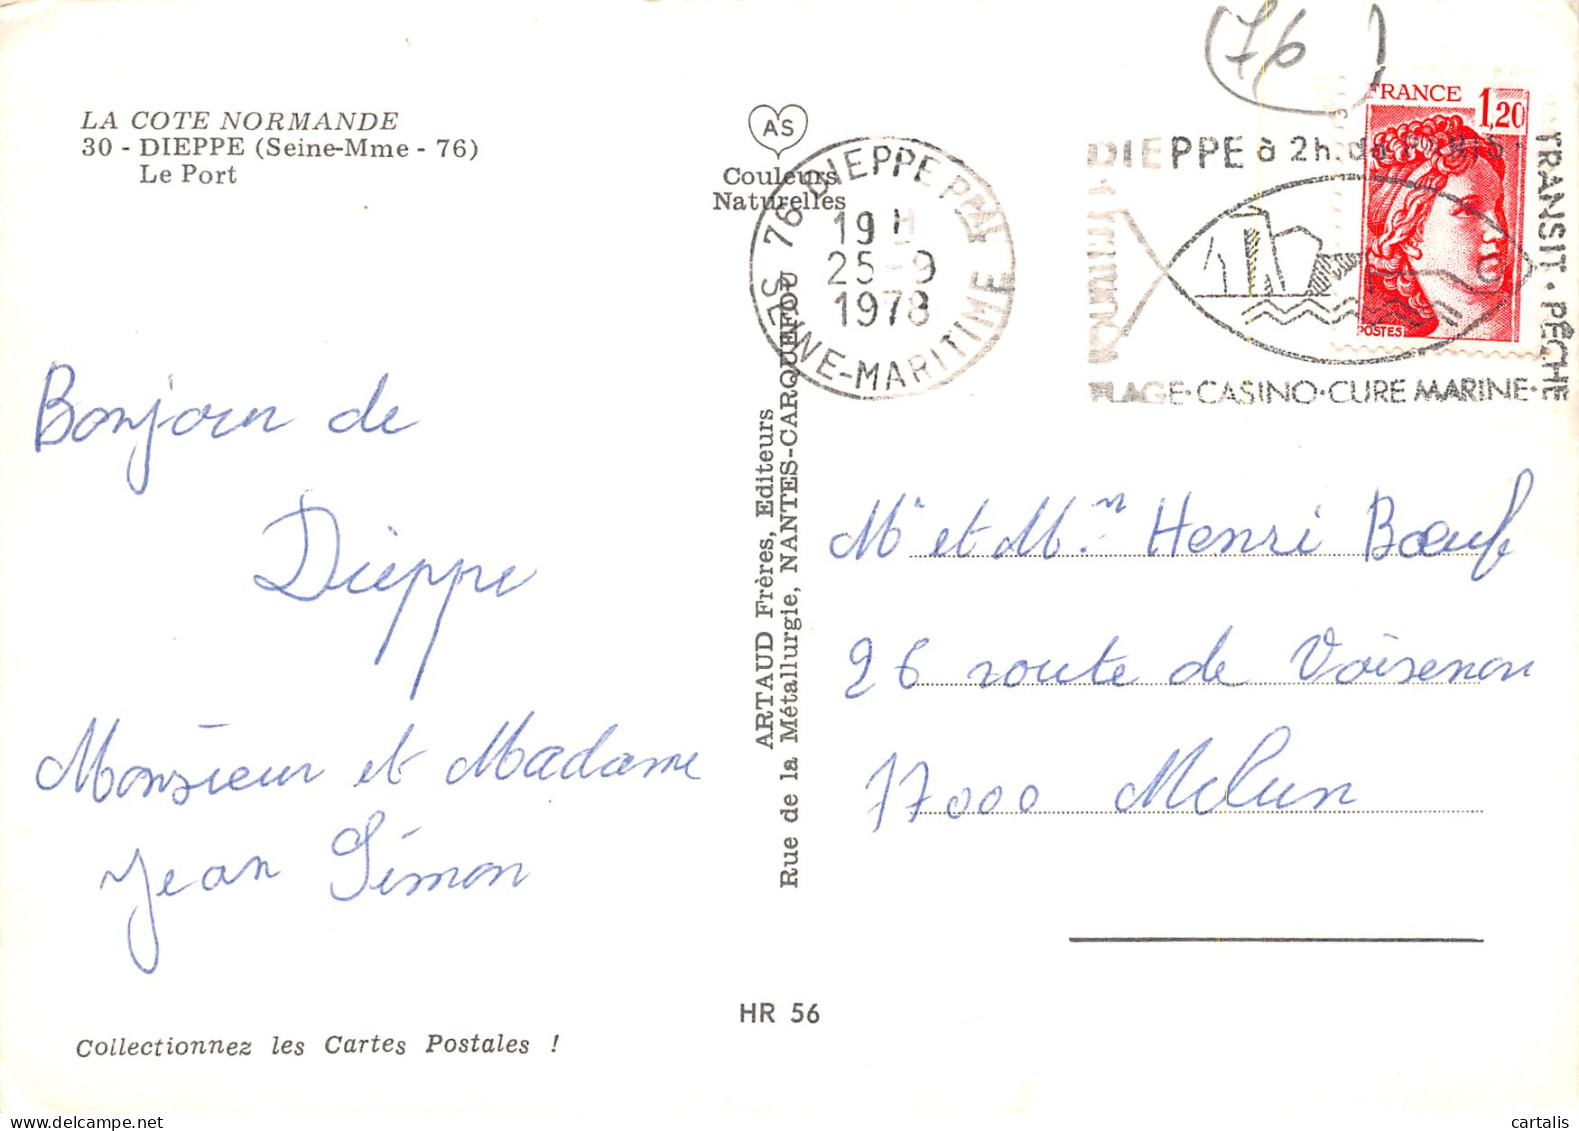 (76)
LA COTE NORMANDE
30 - DIEPPE (Seine-Mme - 76)
Le Port
AS
Couleurs
Naturelles
76 DIEPPE PPAL
19H
25-9
1978
SEINE-MARITIME
DIEPPE à 2h. de PARIS
TRANSIT · PÊCHE
PLAGE·CASINO·CURE MARINE·
FRANCE
1,20
POSTES
Bonjour de
Dieppe
Monsieur et Madame
Jean Simon
ARTAUD Frères, Editeurs
Rue de la Métallurgie, NANTES-CARQUEFOU
Mr et Mm Henri Bœuf
26 route de Voisenon
77000 Melun
HR 56
Collectionnez les Cartes Postales !
cartalis